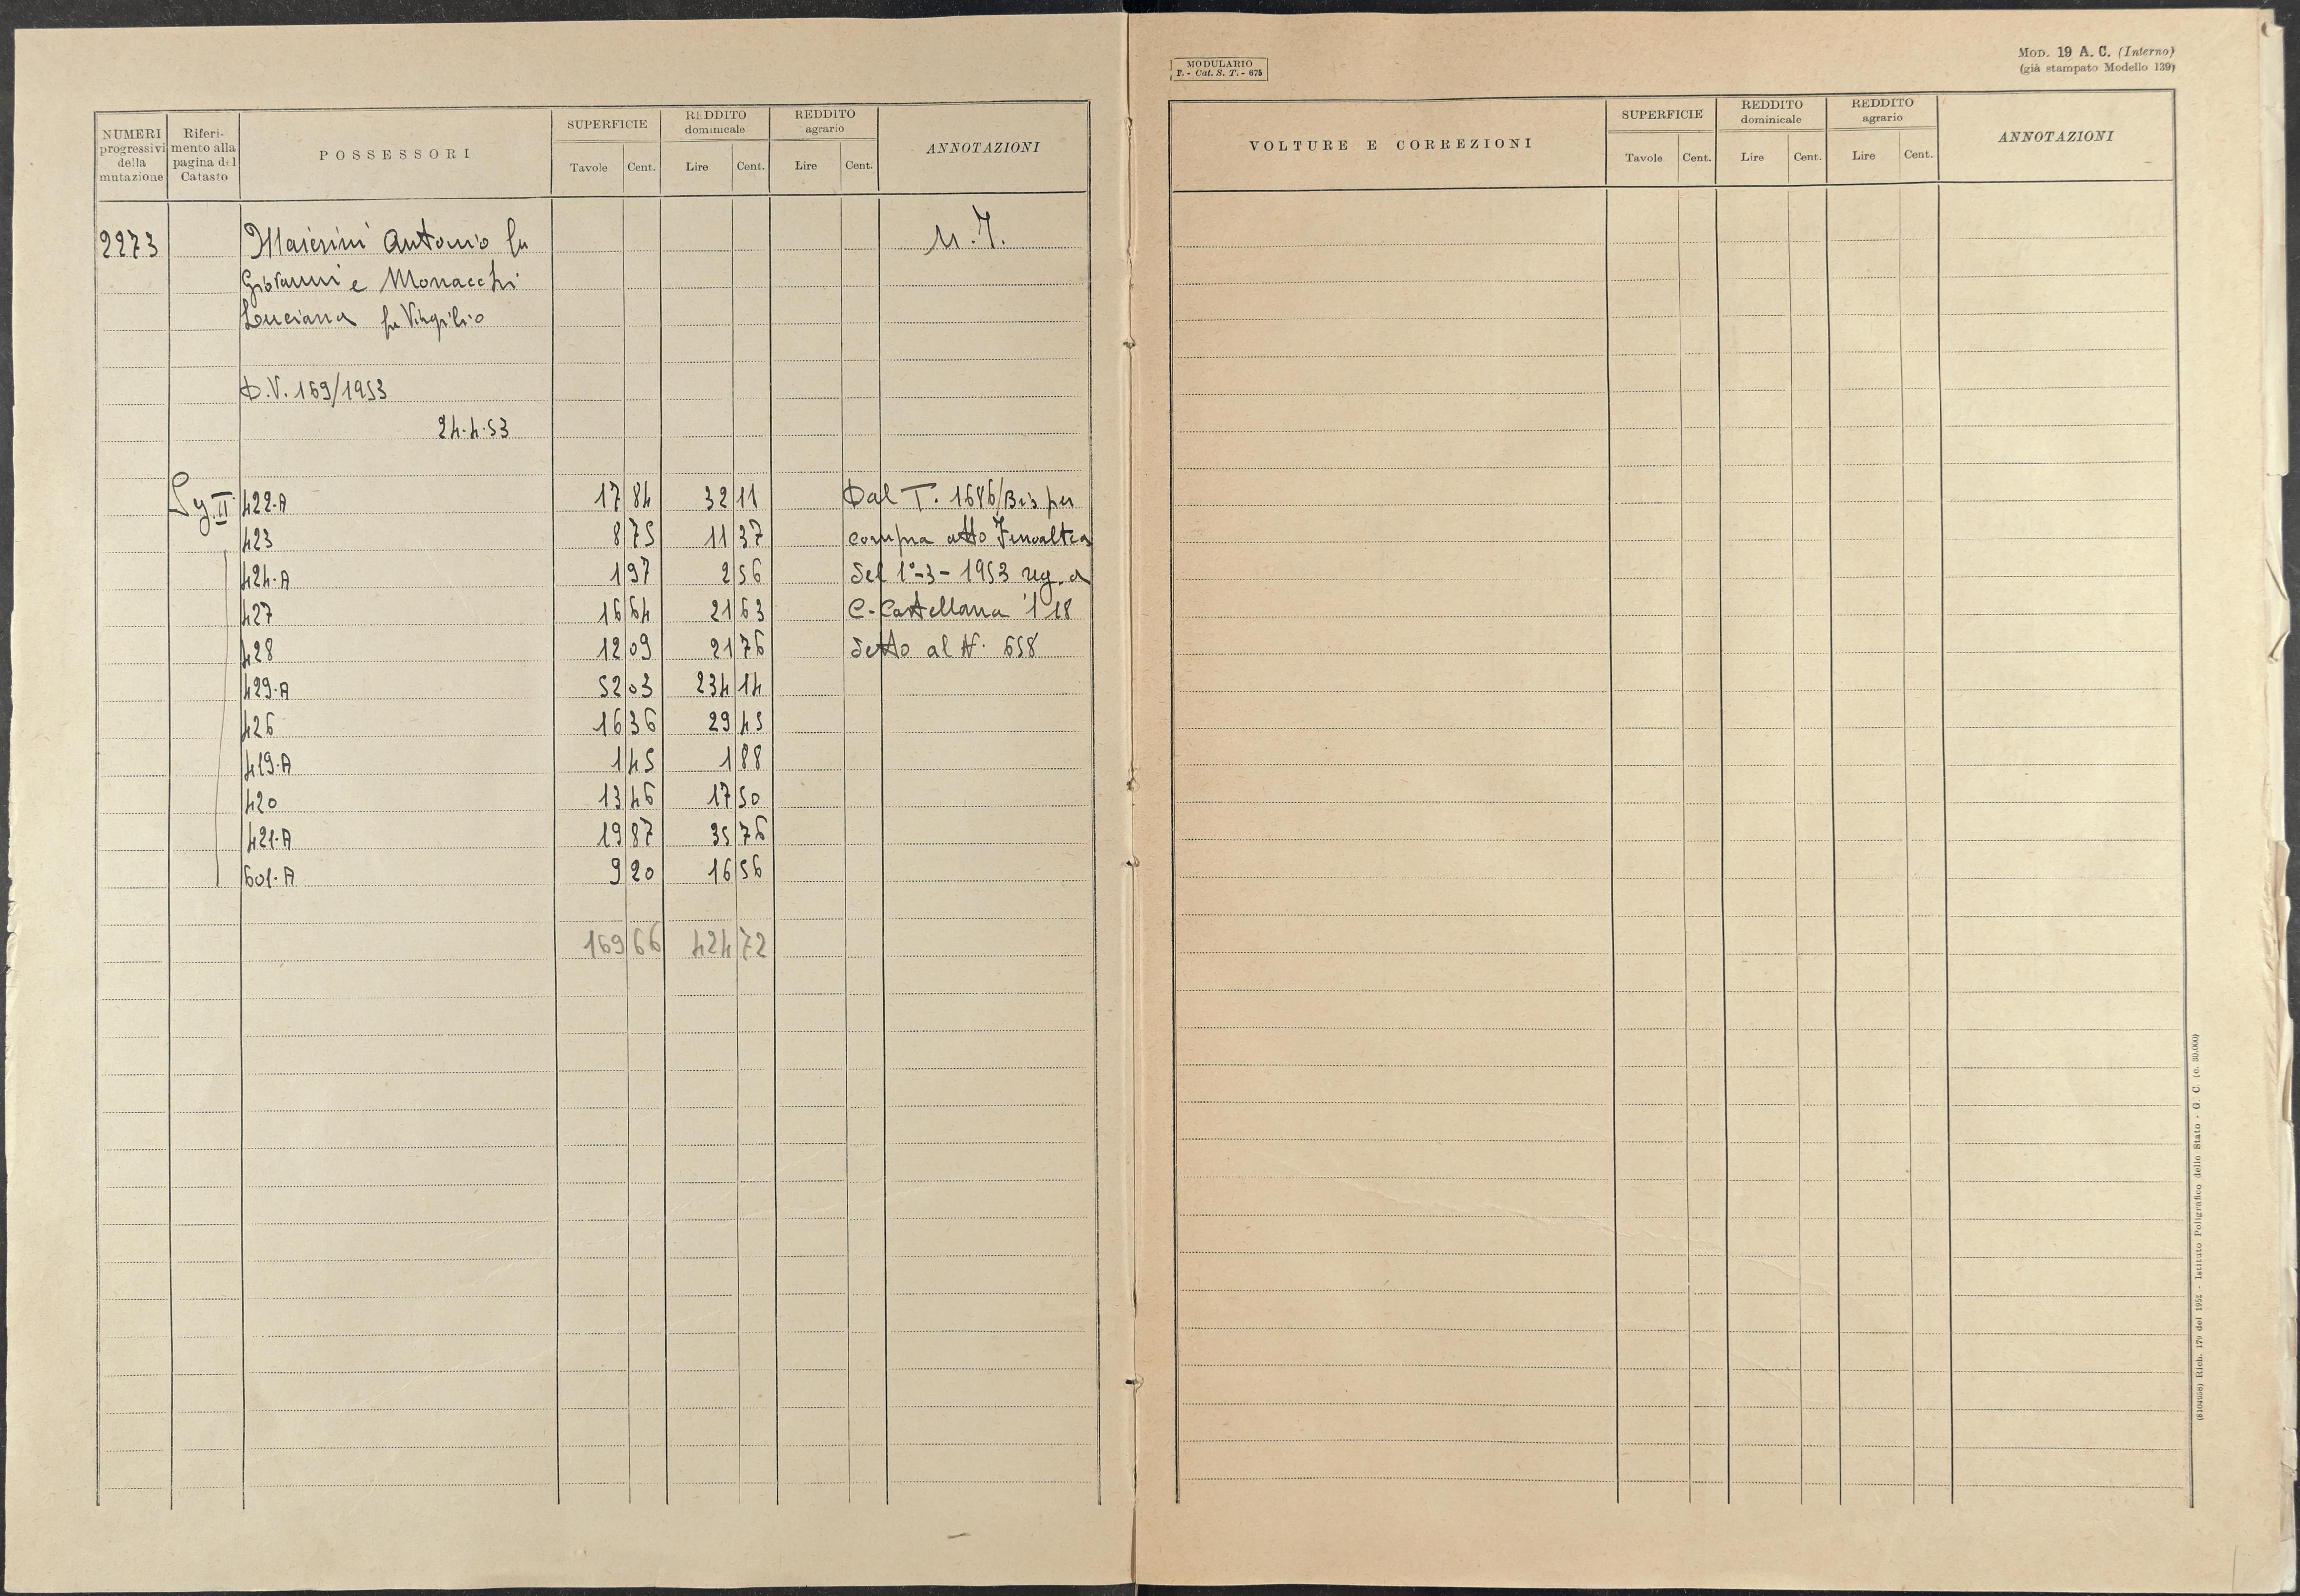 NUMERI progressivi della mutazione | Riferimento alla pagina del Catasto | POSSESSORI | SUPERFICIE Tavole Cent. | REDDITO dominicale Lire Cent. | REDDITO agrario Lire Cent. | ANNOTAZIONI
2273 Antonio fu
Giovanni e Monacchi
Luciana fu Virgilio
D.V. 169/1953
24.4.53
II 422.A 17 84 32 11 Dal T. 1686/Bis per
423 8 75 11 37 compra atto
424.A 1 97 2 56 del 1°-3-1953 reg. a
427 16 64 21 63 C. Castellana il 18
428 12 09 21 76 detto al N. 658
429.A 52 03 234 14
426 16 36 29 45
419.A 1 45 1 88
420 13 46 17 50
421.A 19 87 35 76
601.A 9 20 16 56
169 66 424 72
MODULARIO
F. - Cat. S. T. - 675
MOD. 19 A. C. (Interno)
(già stampato Modello 139)
VOLTURE E CORREZIONI | SUPERFICIE Tavole Cent. | REDDITO dominicale Lire Cent. | REDDITO agrario Lire Cent. | ANNOTAZIONI
Rich. 179 del 1952 - Istituto Poligrafico dello Stato - G. C. (c. 30.000)